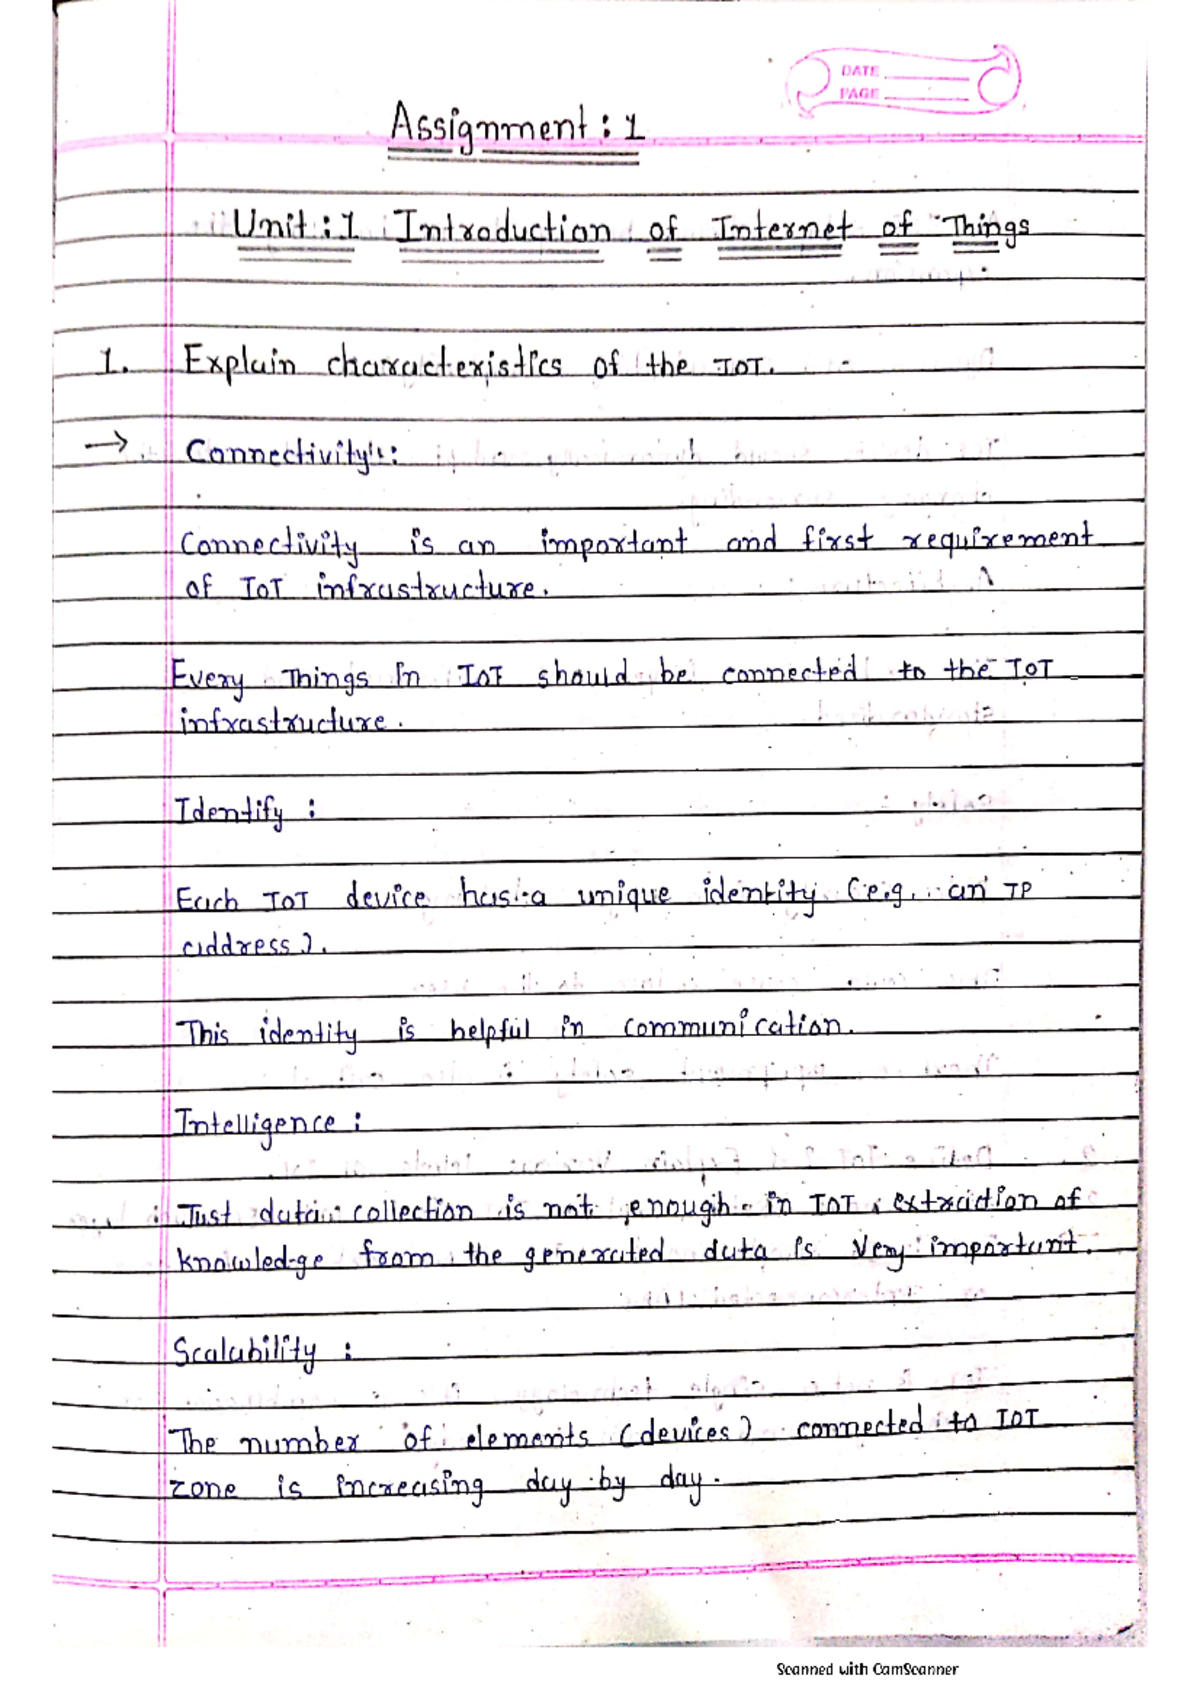 DATE
PAGE
Assignment : 1
Unit : 1 Introduction of Internet of Things
1. Explain characteristics of the IOT.
→ Connectivity :
Connectivity is an important and first requirement
of IoT infrastructure.
Every Things in IOT should be connected to the IOT
infrastructure.
Identify :
Each IOT device has a unique identity (e.g. an IP
address).
This identity is helpful in communication.
Intelligence :
Just data collection is not enough in IOT, extraction of
knowledge from the generated data is very important.
Scalability :
The number of elements (devices) connected to IOT
zone is increasing day by day.
Scanned with CamScanner